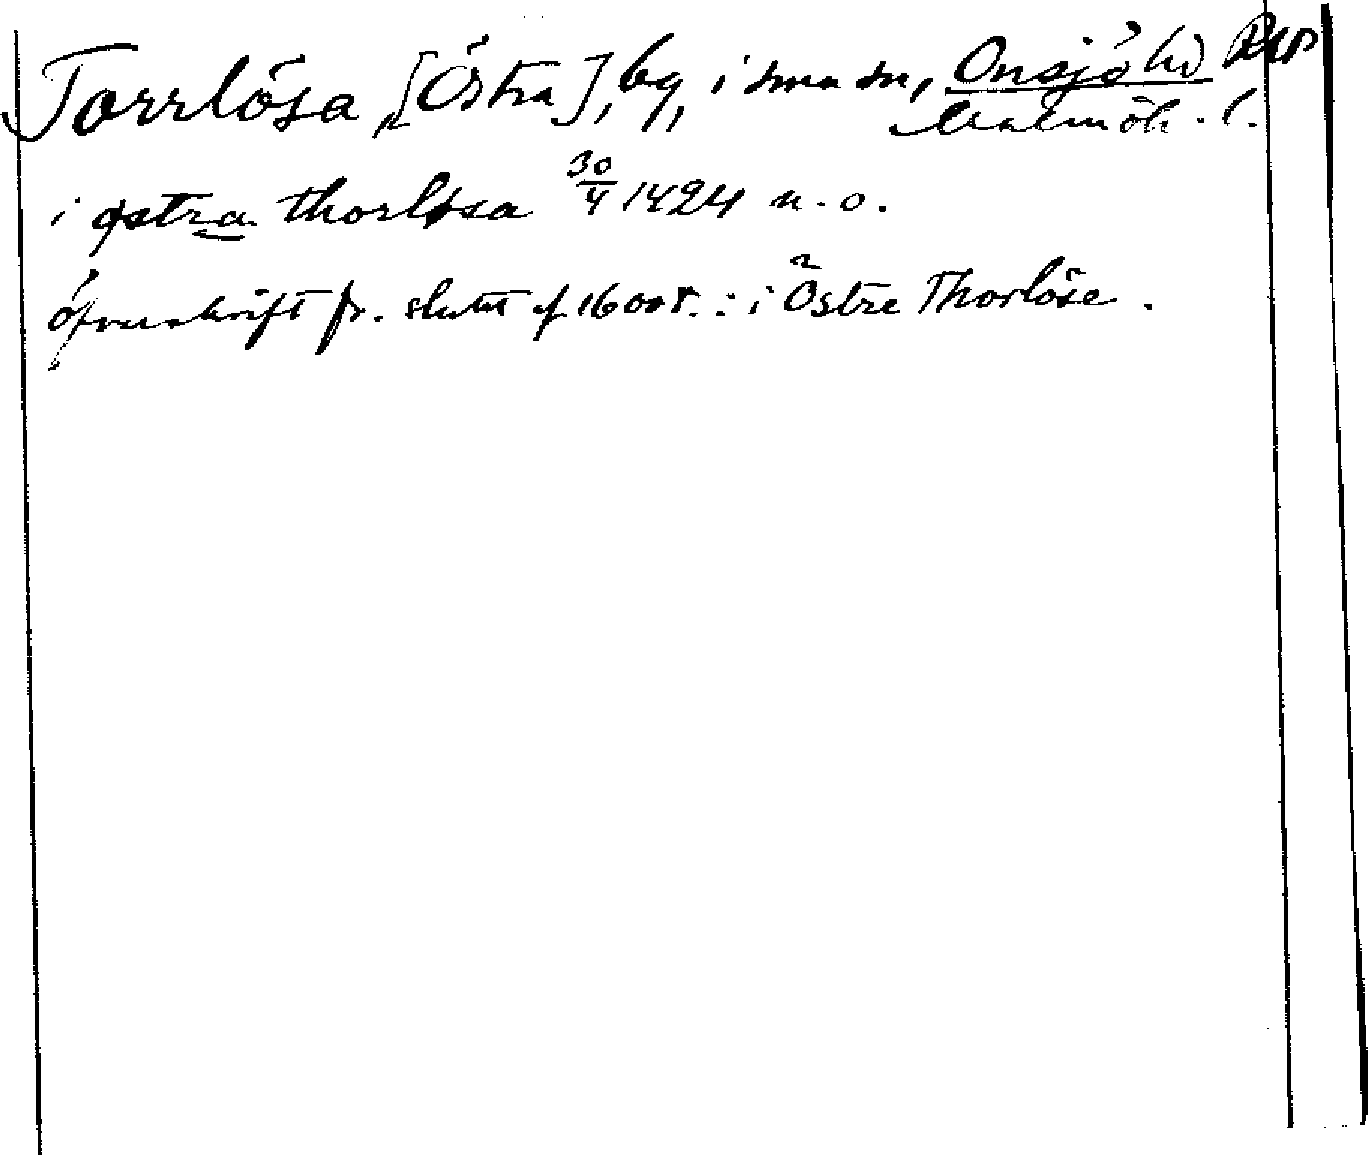 Torrlösa, [Östra], by, i sma sn, Onsjö hd
Malmöh. l.
i østra thorløsa 30/4 1424 n. o.
öfverskrift fr. slutet af 1600 t. : i Östre Thorlöse.